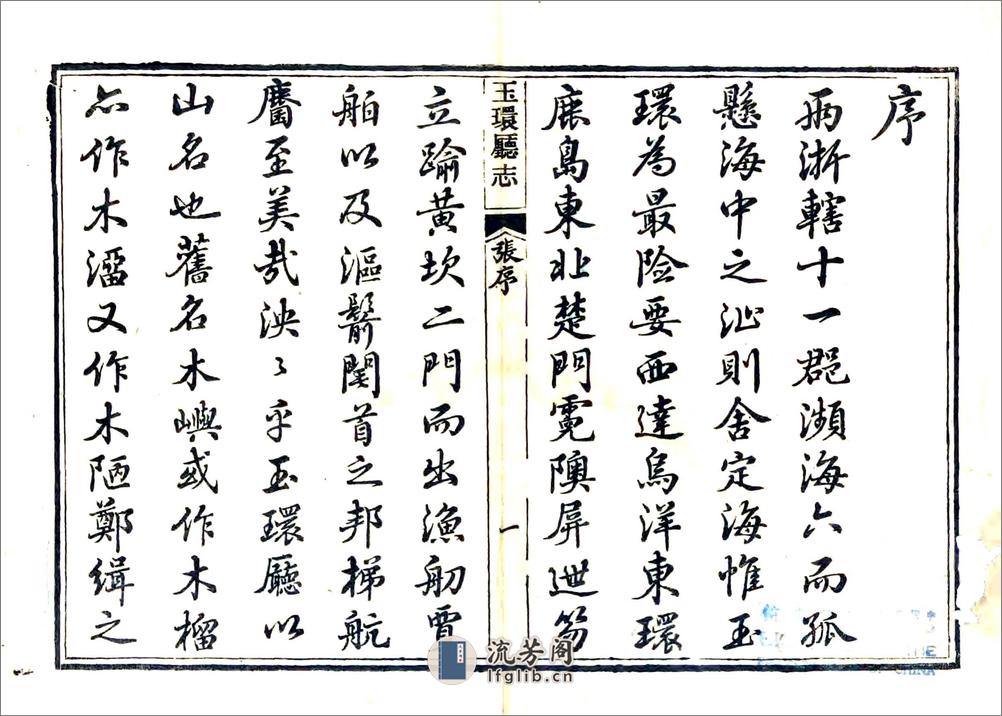 序
兩浙轄十一郡瀕海六而孤
懸海中之沚則舍定海惟玉
環為最險要西達烏洋東環
鹿島東北楚門霓隩屏迣笏
立踰黃坎二門而出漁舠賈
舶以及漚鬋闟首之邦梯航
麕至美哉泱〻乎玉環廳以
山名也舊名木嶼或作木榴
亦作木澑又作木陋鄭緝之
玉環廳志
張序
一
流芳阁
lfglib.cn